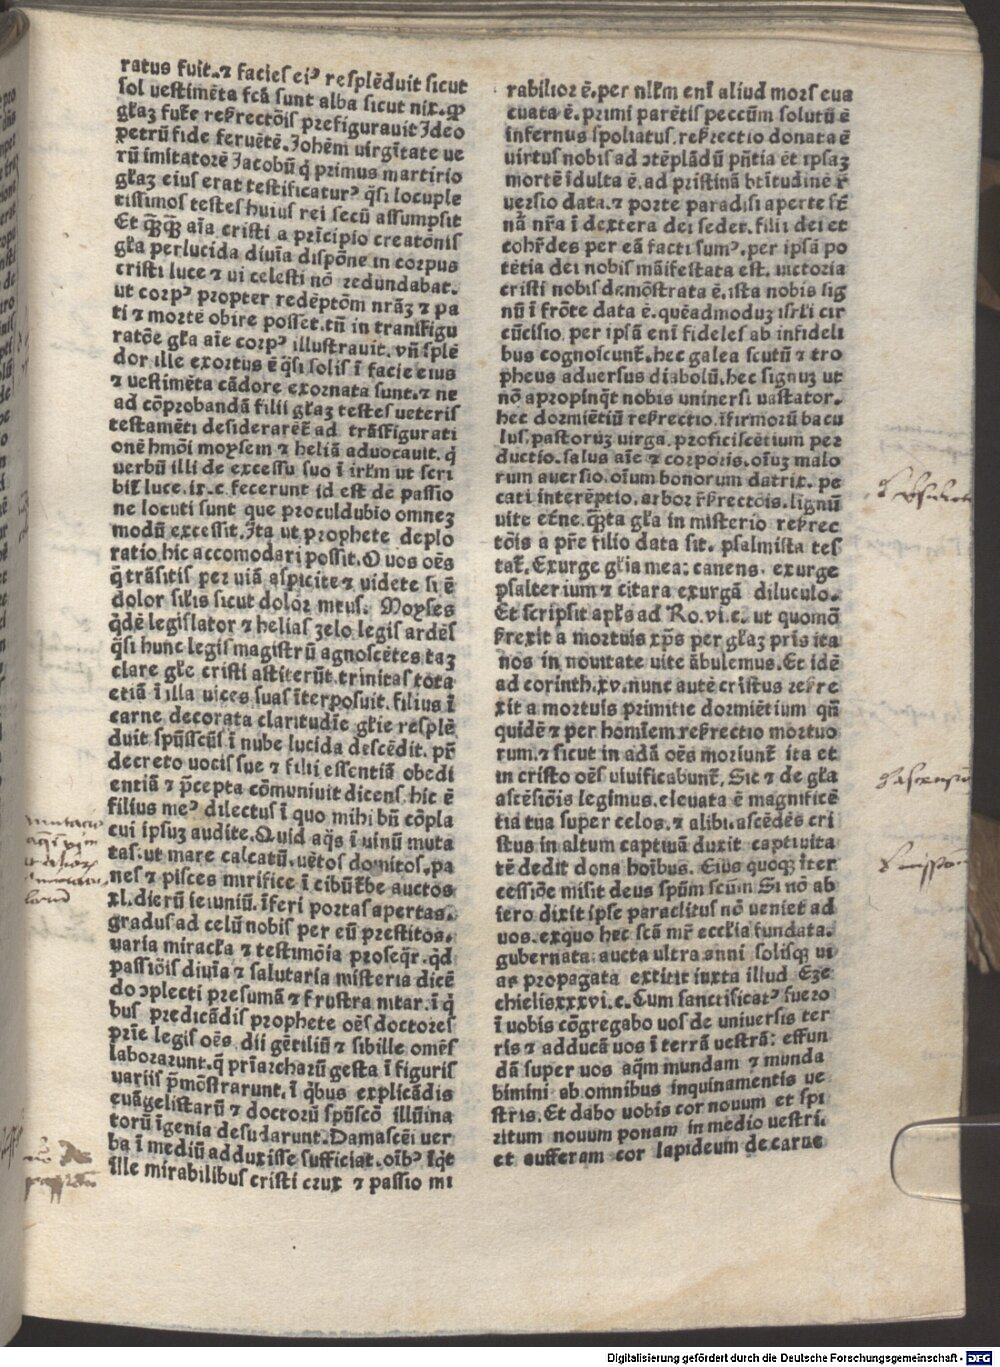 ratus fuit.⁊ facies eiꝰ resplēduit sicut
sol uestimēta ſcā sunt alba sicut nix.
petrū fide feruētē. Johēm uirgītate ue
rū imitatorē Jacobū q̄ primus martirio
glaꝫ eius erat testificaturꝰ q̄si locuple
tissimos testes huius rei secū assumpsit
Et aīa cristi a prīcipio creatōnis
gła perlucida diuīa dispōne in corpus
cristi luce ⁊ ui celesti nō redundabat.
ut corpꝰ propter redēptōm nrāꝫ ⁊ pa
ti ⁊ mortē obire posset. tn̄ in transfigu
ratōe gła aīe corpꝰ illustrauit. vn̄ splē
dor ille exortus ē q̄si solis ī facie eius
⁊ uestimēta cādore exornata sunt.⁊ ne
ad cōprobandā filii głaꝫ testes ueteris
testamēti desiderarēt̄ ad trāsfigurati
onē hmōi moysem ⁊ heliā aduocauit. q̄
uerbū illi de excessu suo ī irłm ut scri
bit̄ luce.ix.c. fecerunt id est de passio
ne locuti sunt que proculdubio omneꝫ
modū excessit. Ita ut prophete deplo
ratio hic accomodari possit. O uos oēs
q̄ trāsitis per uiā aspicite ⁊ videte si ē
dolor silis sicut dolor meus. Moyses
q̄dē legislator ⁊ helias zelo legis ardēs
q̄si hunc legis magistrū agnoscētes taꝫ
clare głe cristi astiterūt. trinitas tota
etiā ī illa uices suas īterposuit. filius ī
carne decorata claritudīe głie resplē
duit spūsscūs ī nube lucida descēdit. pr̄
decreto uocis sue ⁊ filii essentiā obedi
entiā ⁊ p̄cepta cōmuniuit dicens. hic ē
filius meꝰ dilectus ī quo mihi bn̄ cōpla
cui ipsuꝫ audite. Quid aq̄s ī uinū muta
tas. ut mare calcatū. uētos domitos. pa
nes ⁊ pisces mirifice ī cibū auctos
xl. dierū ieiuniū. īferi portas apertas.
gradus ad celū nobis per eū prestitos.
uaria miracła ⁊ testimōia proseqr. q̄d
passiōis diuīa ⁊ salutaria misteria dicē
do ↄplecti presumā ⁊ frustra nitar. ī q̄
bus predicādis prophete oēs doctores
prīe legis oēs dii gētiliū ⁊ sibille omēs
laborarunt. q̄ prīarcharū gesta ī figuris
uariis p̄mōstrarunt. ī q̄bus explicādis
euāgelistarū ⁊ doctorū spūscō illūina
torū īgenia desudarunt. Damascēi uer
ba ī mediū adduxisse sufficiat. oībꝰ
ille mirabilibus cristi crux ⁊ passio mi
rabilior ē. per nłłm enī aliud mors eua
cuata ē. primi parētis peccm̄ solutū ē
infernus spoliatus. resrectio donata ē
uirtus nobis ad ↄtēplādū pn̄tia ēt ipsaꝫ
mortē īdulta ē. ad pristinā bt̄itudinē r̄
uersio data. ⁊ porte paradisi aperte sт̄
nā nr̄a ī dextera dei seder. filii dei et
coheredes per eā facti sumꝰ. per ipsā po
tētia dei nobis māifestata est. uictoria
cristi nobis demōstrata ē. ista nobis sig
nū ī frōte data ē. quēadmoduꝫ isrłi cir
cūcisio. per ipsā enī fideles ab infideli
bus cognoscunt̄. hec galea scutū ⁊ tro
pheus aduersus diabolū. hec signuꝫ ut
nō apropinqt nobis uniuersi uastator.
hec dormiētiū resrectio. īfirmorū bacu
lus. pastoruꝫ uirga. proficiscētium per
ductio. salus aīe ⁊ corporis. oīuꝫ malo
rum auersio. oīum bonorum datrix. pe
cati interēptio. arbor resrectōis. lignū
uite et̄ne. gła in misterio resrec
tōis a pr̄e filio data sit. psalmista tes
tat̄. Exurge głia mea: canens. exurge
psalterium ⁊ citara exurgā diluculo.
Et scripsit apłs ad Ro.vi.c. ut quomō
srexit a mortuis xp̄s per głaꝫ pris ita
nos in nouitate uite ābulemus. Et idē
ad corinth.xv. nunc autē cristus resre
xit a mortuis primitie dormiētium qn̄
quidē ⁊ per homīem resrectio mortuo
rum. ⁊ sicut in adā oēs moriunt̄ ita et
in cristo oēs uiuificabunt̄. Sic ⁊ de gła
ascēsiōis legimus. eleuata ē magnificē
tia tua super celos. ⁊ alibi. ascēdēs cri
stus in altum captiuā duxit captiuita
tē dedit dona hoībus. Eius quoqꝫ īter
cessiōe misit deus spūm scūm Si nō ab
iero dixit ipse paraclitus nō veniet ad
uos. exquo hec scā mr̄ ecclīa fundata.
gubernata: aucta ultra anni solisqꝫ ui
as propagata extitit iuxta illud Eze
chielisxxxvi.c. Cum sanctificatꝰ fuero
ī uobis cōgregabo uos de uniuersis ter
ris ⁊ adducā uos ī terrā uestrā: effun
dā super uos aq̄m mundam ⁊ munda
bimini ab omnibus inquinamentis ue
stris. Et dabo uobis cor nouum et spi
ritum nouum ponam in medio uestri.
et aufferam cor lapideum de carne
Digitalisierung gefördert durch die Deutsche Forschungsgemeinschaft - DFG